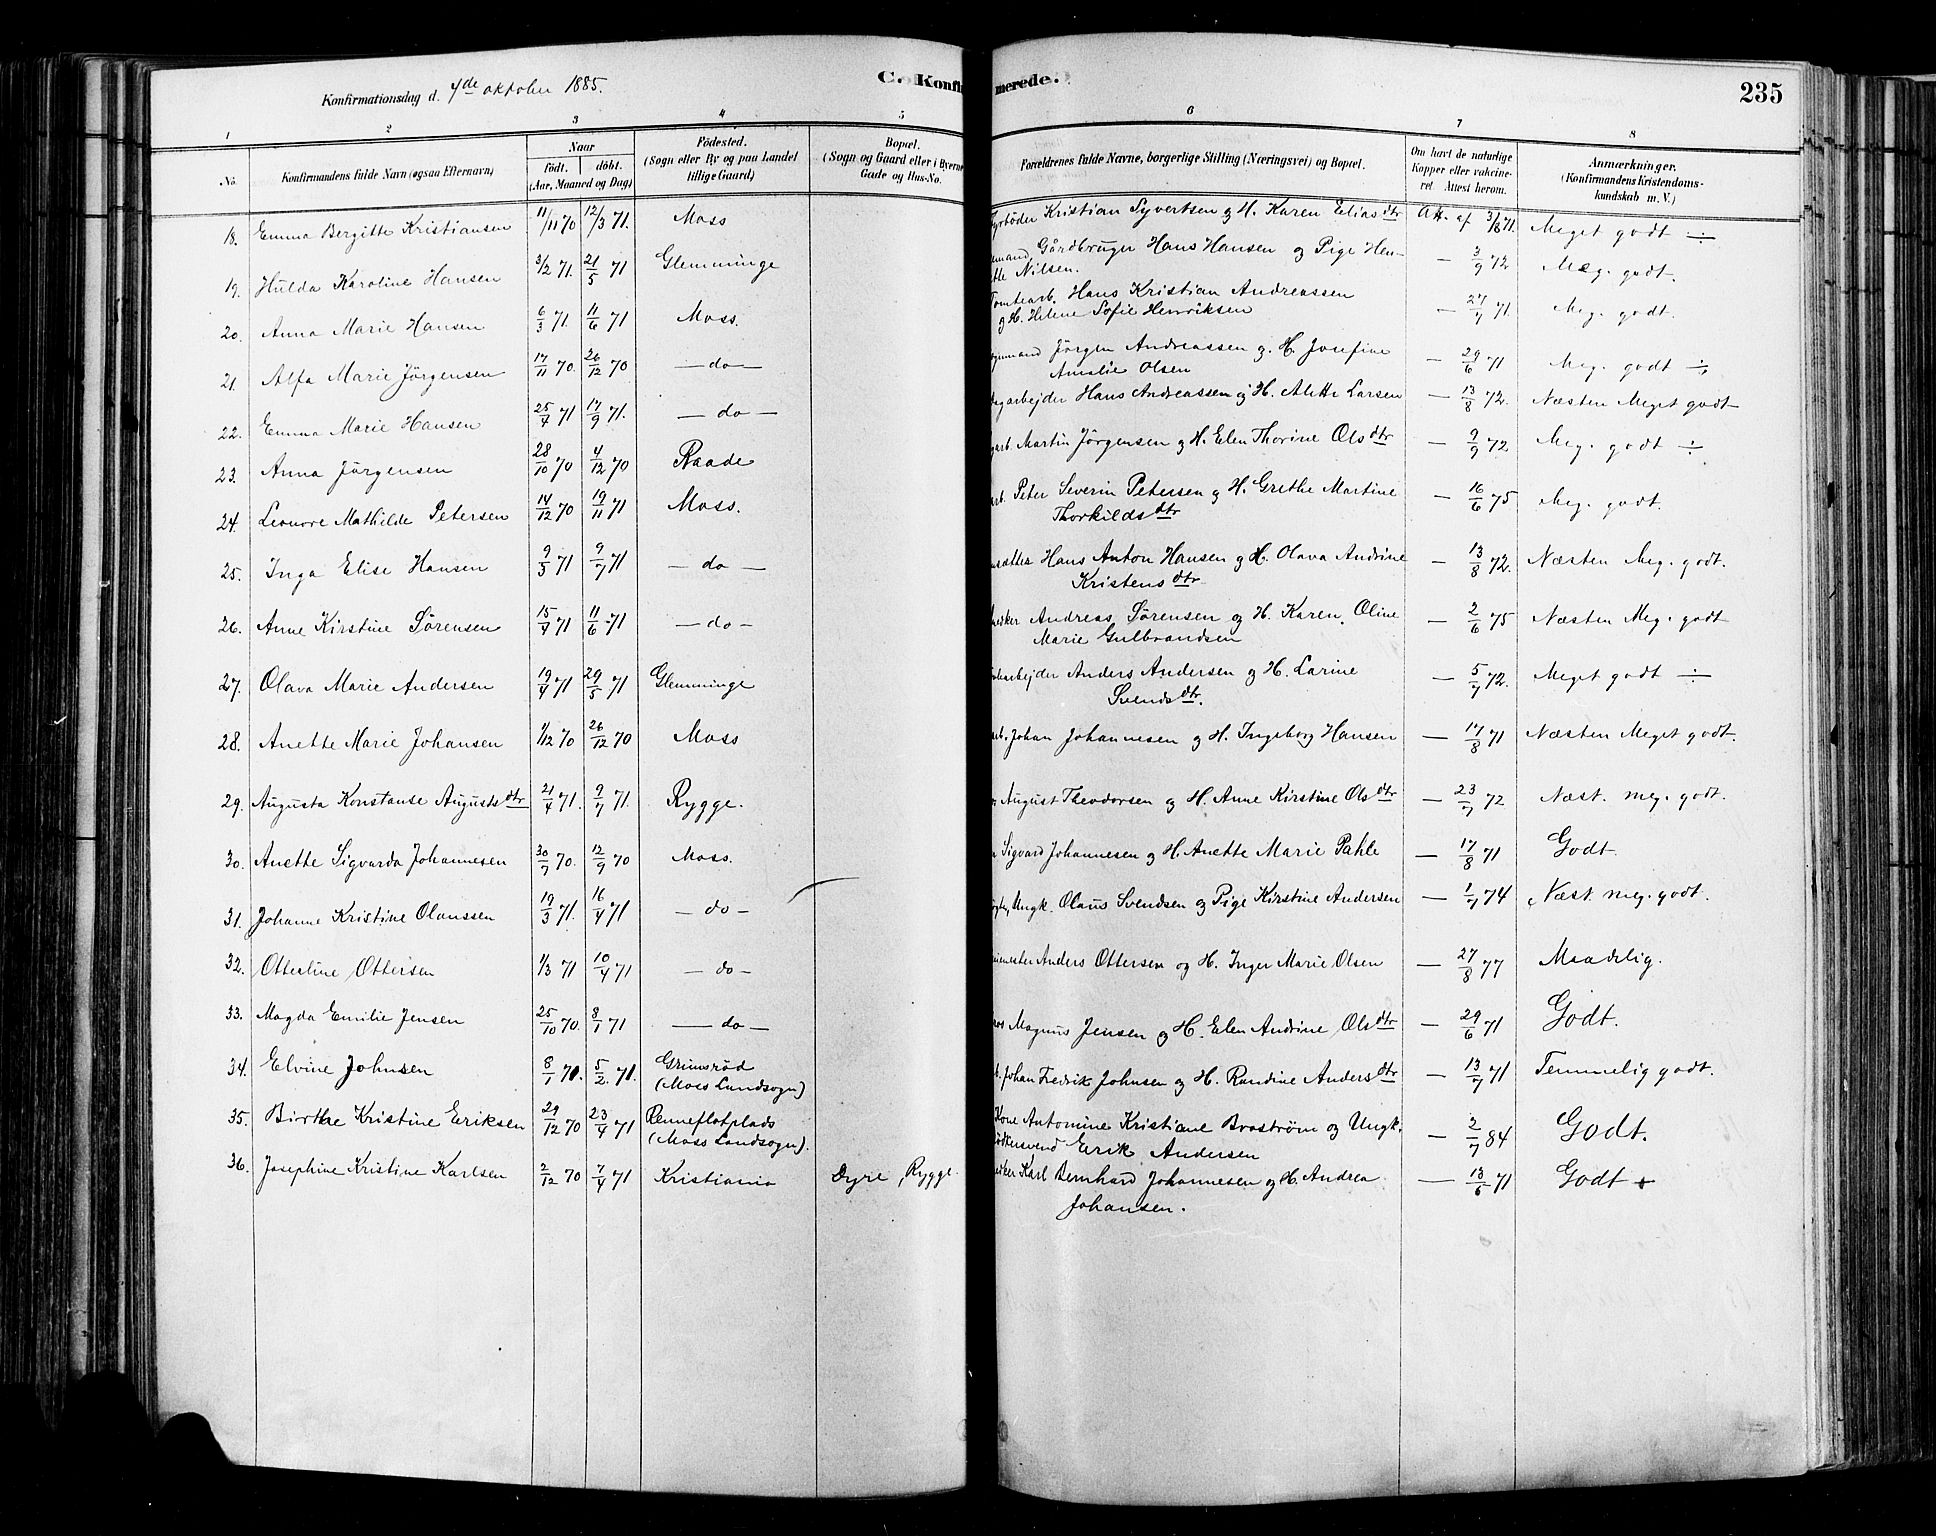 C. Konfirmerede. 235
Konfirmationsdag d. 4de oktober 1885.
1 2 3 4 5 6 7 8
No. Konfirmandens fulde Navn (ogsaa Efternavn)
Naar
födt. döbt.
(Aar, Maaned og Dag)
Födested.
(Sogn eller By og paa Landet
tillige Gaard)
Bopæl.
(Sogn og Gaard eller i Byerne
Gade og Hus-No.
Forældrenes fulde Navne, borgerlige Stilling (Næringsvei) og Bopæl.
Om havt de naturlige
Kopper eller vakcine-
ret. Attest herom.
Anmærkninger.
(Konfirmandens Kristendoms-
kundskab m. V.)
18. Emma Bergitte Kristiansen 11/11 70 12/3 71. Moss Fyrböder Kristian Syvertsen og H. Karen Elias dtr Att. af 3/8 71. Meget godt ÷
19. Hulda Karoline Hansen 3/2 71. 21/5 71 Glemminge Gårdbruger Hans Hansen og Pige Hen-
Nilsen. — 3/9 72 Meg. godt.
20. Anna Marie Hansen 6/3 71. 11/6 71 Moss. Tomtearb. Hans Kristian Andreassen
og H. Helene Sofie Henriksen — 27/7 71. Meg. godt.
21. Alfa Marie Jörgensen 17/11 70. 26/12 70 — do — Jörgen Andreassen og H. Josefine
Amalie Olsen — 29/6 71 Meg. godt ÷
22. Emma Marie Hansen 25/4 71 17/9 71. — do — Dagarbejder Hans Andreassen og H. Alette Larsen — 13/8 72. Næsten Meget godt
23. Anna Jörgensen 28/10 70 4/12 70 Raade Martin Jörgensen og H. Elen Thorine Ols dtr — 9/9 72 Meg. godt ÷
24. Leonore Mathilde Petersen 14/12 70 19/11 71 Moss. Peter Severin Petersen og H. Grethe Martine
Thorkilds dtr — 16/6 75 Meg. godt.
25. Inga Elise Hansen 9/3 71 9/7 71 — do — Hans Anton Hansen og H. Olava Andrine
Kristens dtr — 13/8 72. Næsten Meg. godt.
26. Anne Kirstine Sørensen 15/4 71 11/6 71 — do — Andreas Sørensen og H. Karen Oline
Marie Gulbrandsen — 2/6 75 Næsten Meg. godt
27. Olava Marie Andersen 19/4 71 29/5 71 Glemminge Anders Andersen og H. Larine
Svends dtr. — 5/7 72. Meget godt ÷
28. Anette Marie Johansen 1/12 70 26/12 70 Moss Johan Johannesen og H. Ingeborg Hansen — 17/8 71 Næsten Meget godt.
29. Augusta Konstanse Augusts dtr 21/4 71. 9/7 71. Rygge. August Theodorsen og H. Anne Kirstine Ols dtr — 23/7 72 Næst. meg. godt.
30. Anette Sigvarda Johannesen 30/7 70. 12/9 70 Moss. Sigvard Johannesen og H. Anette Marie Pahle — 17/8 71 Godt.
31. Johanne Kristine Olaussen 19/3 71. 16/4 71 — do — Ungk. Olaus Svendsen og Pige Kirstine Andersen — 1/7 74 Næst. meg. godt.
32. Otterline Ottersen 1/3 71 10/4 71 — do — Anders Ottersen og H. Inger Marie Olsen — 27/8 77 Maadelig.
33. Magda Emilie Jensen 25/10 70. 8/1 71 — do — Magnus Jensen og H. Elen Andrine Ols dtr — 29/6 71 Godt.
34. Elvine Johnsen 8/1 71. 5/2 71. Grimsröd
(Moss Landsogn) Johan Fredrik Johnsen og H. Randine Anders dtr — 13/7 71 Temmelig godt.
35. Birthe Kristine Eriksen 29/12 70 23/4 71 Renneflotplads
(Moss Landsogn). Kone Antomine Kristiane Broström og Ungk.
Erik Andersen — 2/7 84 Godt.
36. Josephine Kristine Karlsen 2/12 70 7/4 71 Kristiania Dyre, Rygge. Karl Bernhard Johannesen og H. Andrea
Johansen. — 13/6 71 Godt +